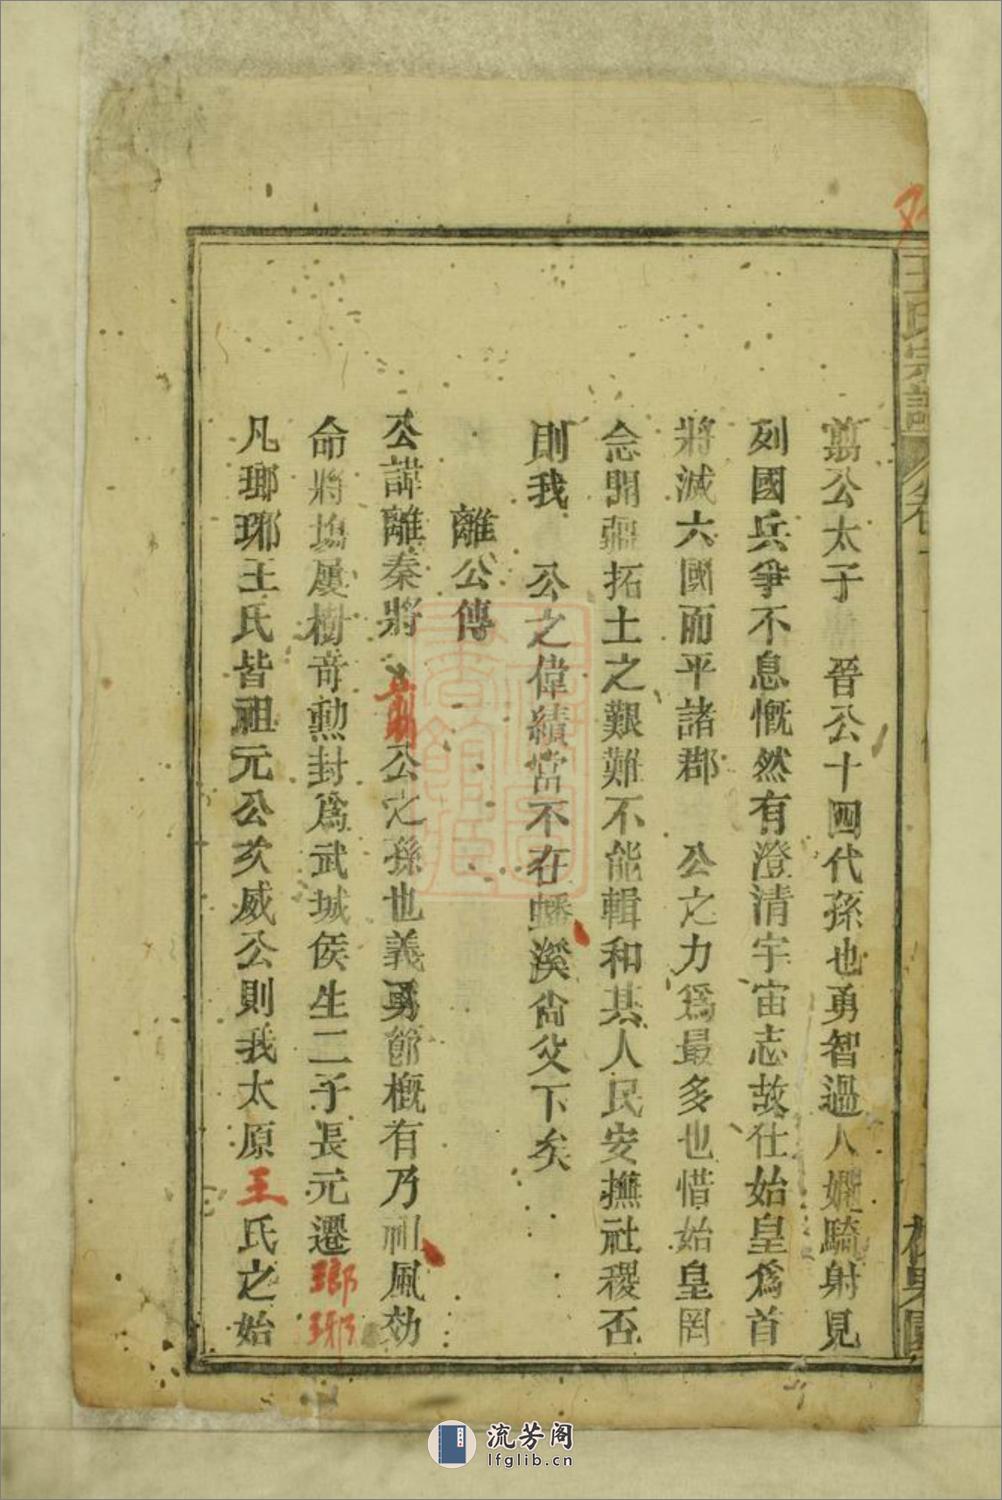 王氏宗譜
卷一
翦公太子 晉公十四代孫也勇智過人嫻騎射見
列國兵爭不息慨然有澄清宇宙志故仕始皇爲首
將滅六國而平諸郡 公之力爲最多也惜始皇罔
念開疆拓土之艱難不能輯和其人民安撫社稷否
則我 公之偉績當不在蟠溪尙父下矣
離公傳
公諱離秦將翦公之孫也義勇節槪有乃祖風効
命將塲屢樹竒勲封爲武城侯生二子長元遷瑯琊
凡瑯琊王氏皆祖元公次威公則我太原王氏之始
流芳阁
lfglib.cn